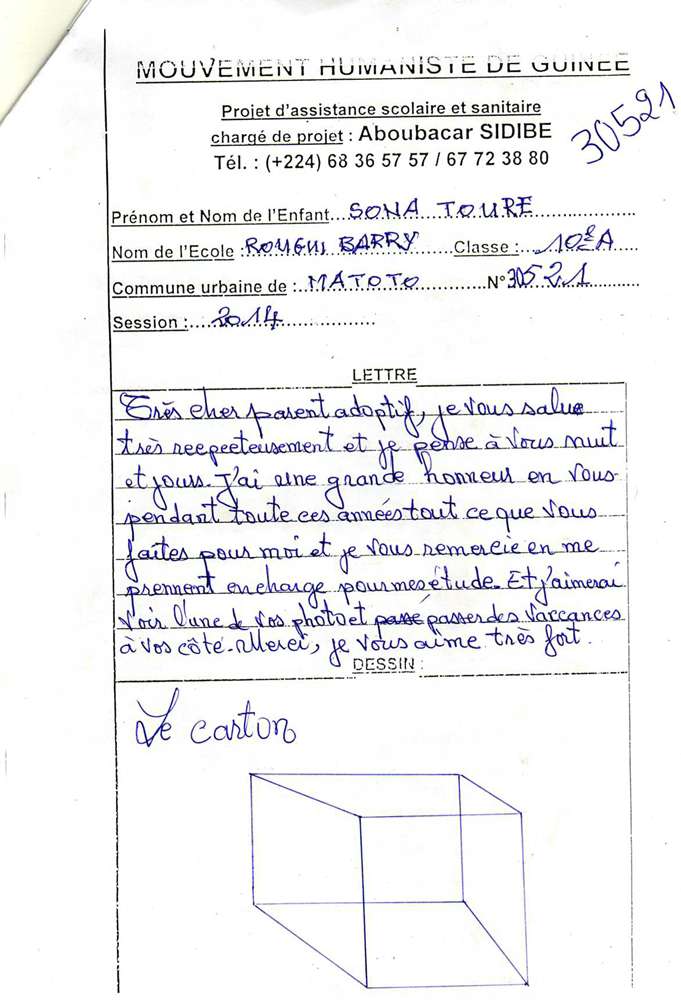 MOUVEMENT HUMANISTE DE GUINEE
Projet d'assistance scolaire et sanitaire
chargé de projet : Aboubacar SIDIBE
Tél. : (+224) 68 36 57 57 / 67 72 38 80
30521
Prénom et Nom de l'Enfant...SONA TOURE
Nom de l'Ecole :ROUGUI BARRY Classe :...10è A
Commune urbaine de :..MATOTO N°30521
Session :...2014
LETTRE
Très cher parent adoptif, je vous salue
très reepeeteusement et je pense à vous nuit
et jours. J'ai une grande honneur en vous
pendant toute ces années tout ce que vous
faites pour moi et je vous remercie en me
prennent en charge pour mes étude. Et j'aimerai
voir l'une de vos photo et passé passer des vaccances
à vos côté. Merci, je vous aime très fort.
DESSIN :
Le carton